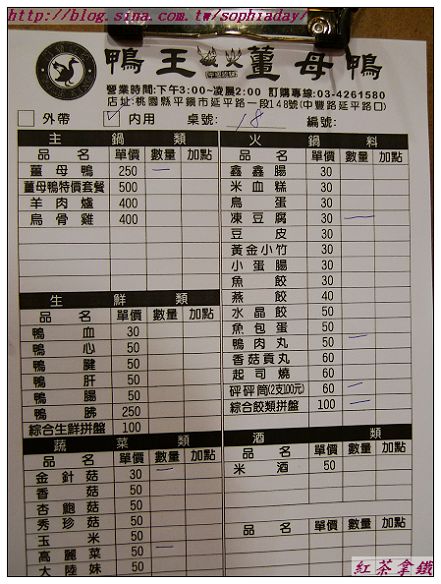 http://blog.sina.com.tw/sophiaday/
鴨王炭火薑母鴨
營業時間:下午3:00~凌晨2:00 訂購專線:03-4261580
店址:桃園縣平鎮市延平路一段148號(中豐路延平路口)
外帶 內用 桌號: 18 編號:
主鍋類
品名 單價 數量 加點
薑母鴨 250 一
薑母鴨特價套餐 500
羊肉爐 400
烏骨雞 400
生鮮類
品名 單價 數量 加點
鴨血 30
鴨心 50
鴨腱 50
鴨肝 50
鴨腸 50
鴨胇 250
綜合生鮮拼盤 100
蔬菜類
品名 單價 數量 加點
金針菇 30 一
香菇 50
杏鮑菇 50
秀珍菇 50
玉米 50
高麗菜 50 一
大陸妹 50
火鍋料
品名 單價 數量 加點
鑫鑫腸 30
米血糕 30
鳥蛋 30
凍豆腐 30 一
豆皮 30
黃金小竹 30
小蛋腸 30
魚餃 30
燕餃 40
水晶餃 50
魚包蛋 50
鴨肉丸 50 一
香菇貢丸 60
起司燒 60
砰砰筒(2支100元) 60 一
綜合餃類拼盤 100 一
酒類
品名 單價 數量 加點
米酒 50
品名 單價 數量 加點
紅茶拿鐵